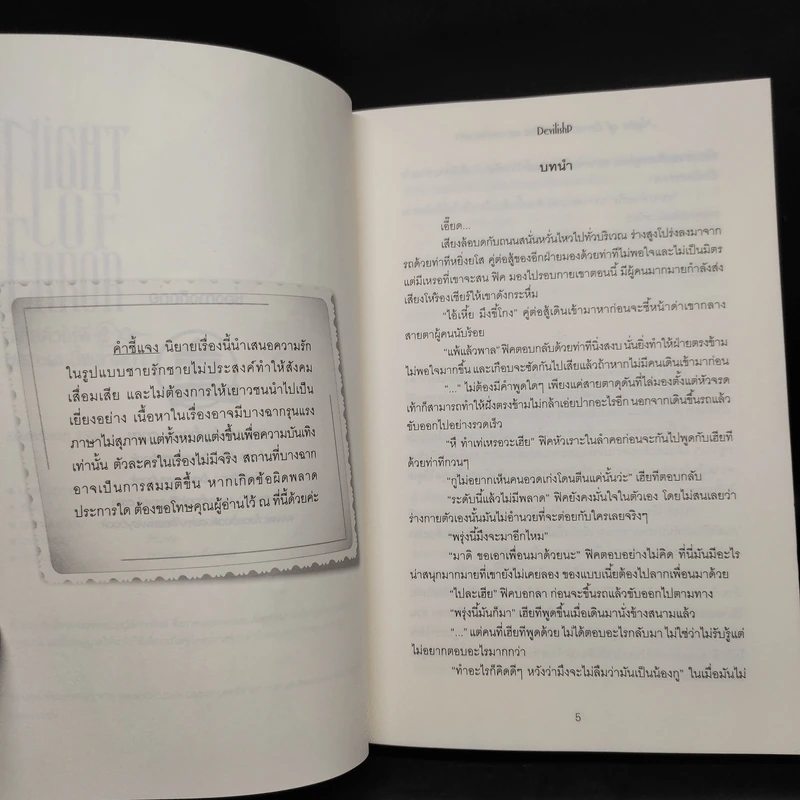 คำชี้แจง นิยายเรื่องนี้นำเสนอความรัก
ในรูปแบบชายรักชายไม่ประสงค์ทำให้สังคม
เสื่อมเสีย และไม่ต้องการให้เยาวชนนำไปเป็น
เยี่ยงอย่าง เนื้อหาในเรื่องอาจมีบางฉากรุนแรง
ภาษาไม่สุภาพ แต่ทั้งหมดแต่งขึ้นเพื่อความบันเทิง
เท่านั้น ตัวละครในเรื่องไม่มีจริง สถานที่บางฉาก
อาจเป็นการสมมติขึ้น หากเกิดข้อผิดพลาด
ประการใด ต้องขอโทษคุณผู้อ่านไว้ ณ ที่นี้ด้วยค่ะ
DevilishP
บทนำ
เอี๊ยด...
เสียงล้อบดกับถนนสนั่นหวั่นไหวไปทั่วบริเวณ ร่างสูงโปร่งลงมาจาก
รถด้วยท่าทีหยิ่งยโส คู่ต่อสู้ของอีกฝ่ายมองด้วยท่าทีไม่พอใจและไม่เป็นมิตร
แต่มีเหรอที่เขาจะสน ฟิค มองไปรอบกายเขาตอนนี้ มีผู้คนมากมายกำลังส่ง
เสียงโห่ร้องเชียร์ให้เขาดังกระหึ่ม
"ไอ้เหี้ย มึงขี้โกง" คู่ต่อสู้เดินเข้ามาหาก่อนจะชี้หน้าด่าเขากลาง
สายตาผู้คนนับร้อย
"แพ้แล้วพาล" ฟิคตอบกลับด้วยท่าทีนิ่งสงบ นั่นยิ่งทำให้ฝ่ายตรงข้าม
ไม่พอใจมากขึ้น และเกือบจะซัดกันไปเสียแล้วถ้าหากไม่มีคนเดินเข้ามาก่อน
"..." ไม่ต้องมีคำพูดใดๆ เพียงแค่สายตาดุดันที่ไล่มองตั้งแต่หัวจรด
เท้าก็สามารถทำให้ฝั่งตรงข้ามไม่กล้าเอ่ยปากอะไรอีก นอกจากเดินขึ้นรถแล้ว
ขับออกไปอย่างรวดเร็ว
"หึ ทำเท่เหรอวะเฮีย" ฟิคหัวเราะในลำคอก่อนจะหันไปพูดกับเฮียที
ด้วยท่าทีกวนๆ
"กูไม่อยากเห็นคนอวดเก่งโดนตีนแค่นั้นว่ะ" เฮียทีตอบกลับ
"ระดับนี้แล้วไม่มีพลาด" ฟิคยังคงมั่นใจในตัวเอง โดยไม่สนเลยว่า
ร่างกายตัวเองนั้นมันไม่อำนวยที่จะต่อยกับใครเลยจริงๆ
"พรุ่งนี้มึงจะมาอีกไหม"
"มาดิ ขอเอาเพื่อนมาด้วยนะ" ฟิคตอบอย่างไม่คิด ที่นี่มันมีอะไร
น่าสนุกมากมายที่เขายังไม่เคยลอง ของแบบเนี้ยต้องไปลากเพื่อนมาด้วย
"ไปละเฮีย" ฟิคบอกลา ก่อนจะขึ้นรถแล้วขับออกไปตามทาง
"พรุ่งนี้มันก็มา" เฮียทีพูดขึ้นเมื่อเดินมานั่งข้างสนามแล้ว
"..." แต่คนที่เฮียทีพูดด้วย ไม่ได้ตอบอะไรกลับมา ไม่ใช่ว่าไม่รับรู้แต่
ไม่อยากตอบอะไรมากกว่า
"ทำอะไรก็คิดดีๆ หวังว่ามึงจะไม่ลืมว่ามันเป็นน้องกู" ในเมื่อมันไม่
5